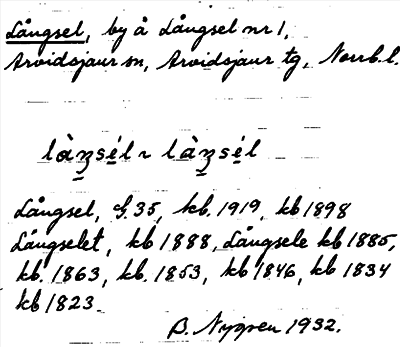 Långsel, by å Långsel nr 1,
Arvidsjaur sn, Arvidsjaur tg, Norrb. l.
làŋsél ~ làŋsél
Långsel, G.35, kb. 1919, kb 1898
Långselet, kb 1888, Långsele kb 1885,
kb. 1863, kb. 1853, kb 1846, kb 1834
kb 1823
B. Nygren 1932.